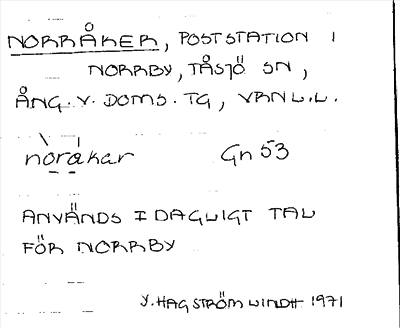 NORRÅKER, POSTSTATION I
NORRBY, TÅSJÖ SN,
ÅNG. V. DOMS. TG, VRNL.L.
noråkar Gn 53
ANVÄNDS I DAGLIGT TAL
FÖR NORRBY
Y. HAGSTRÖM LINDH 1971